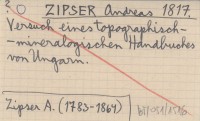 ? O ZIPSER Andreas 1817.
Versuch eines topographisch-
-mineralogischen Handbuches
von Ungarn.
Zipser A. (1783-1864)